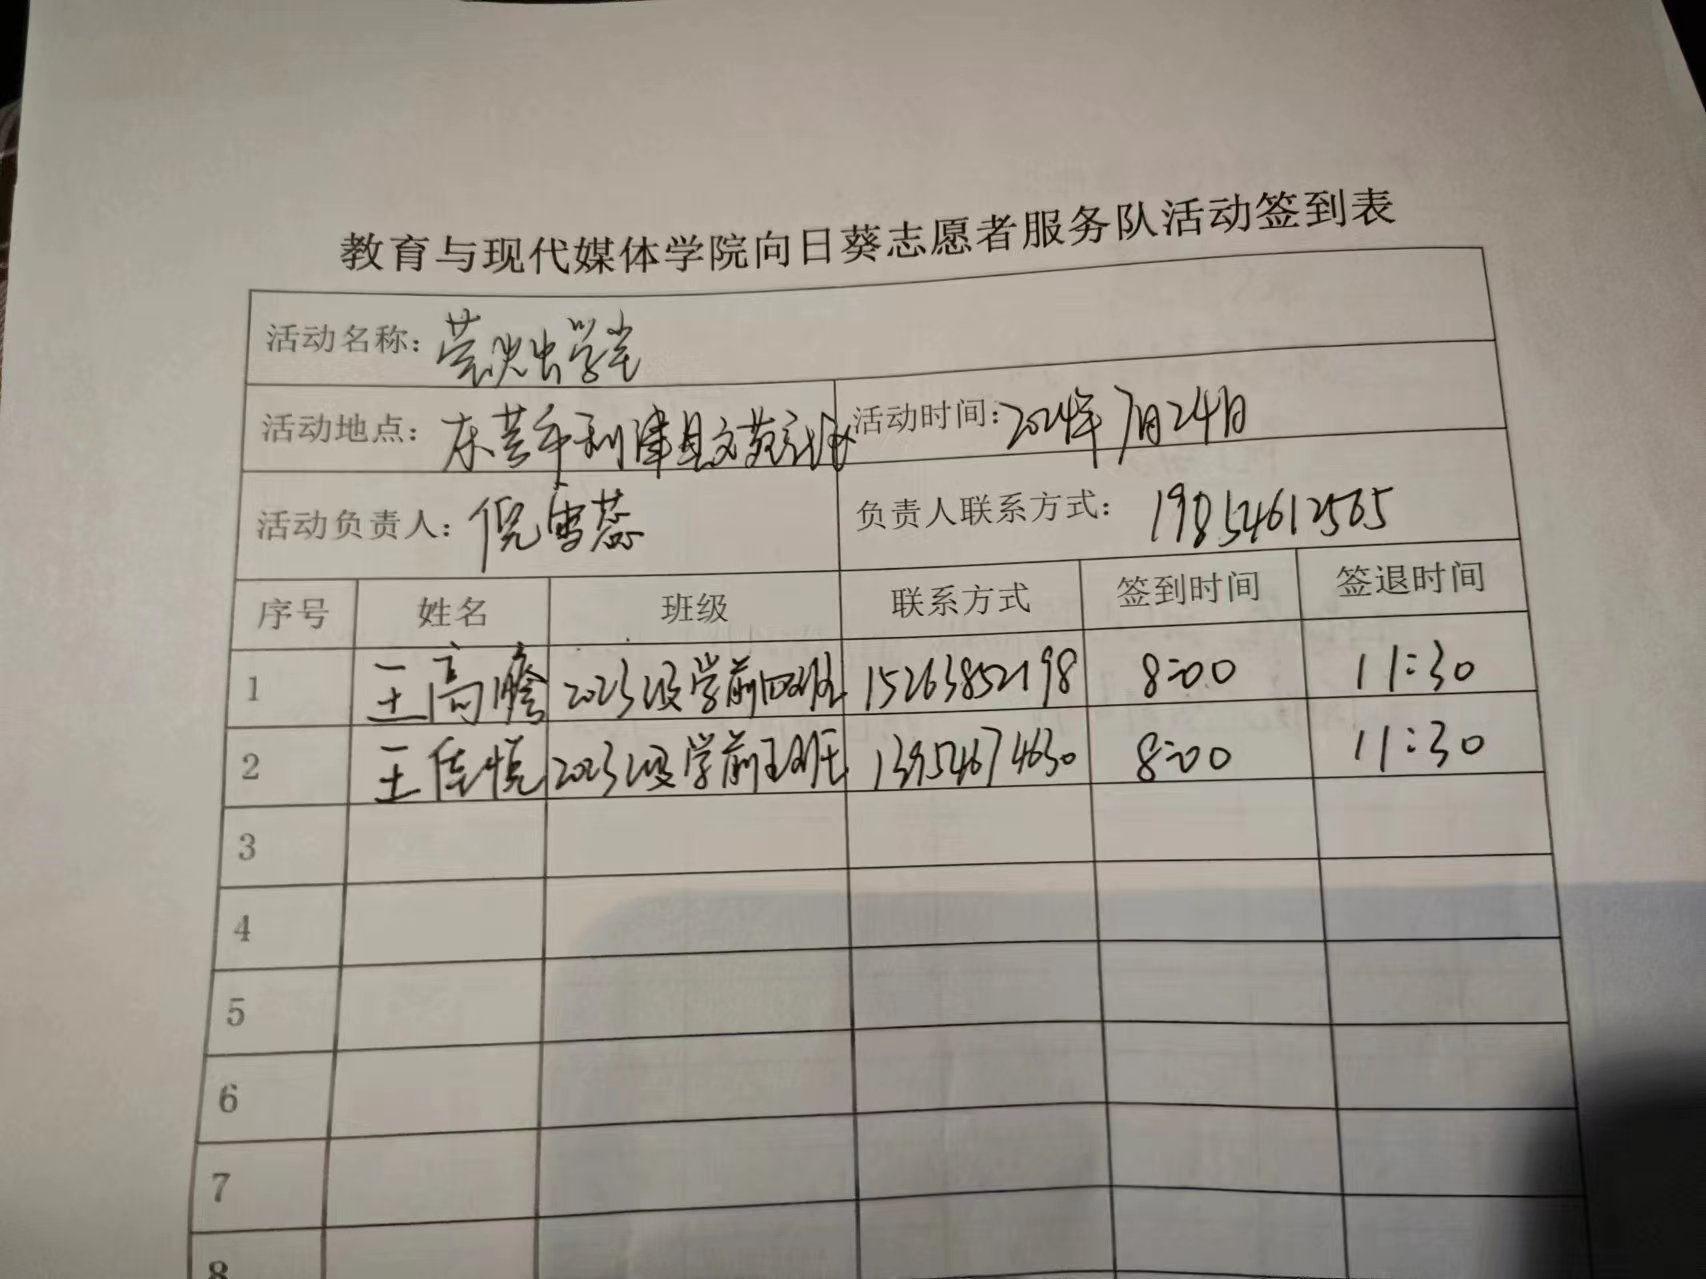 教育与现代媒体学院向日葵志愿者服务队活动签到表
活动名称：萤火虫学堂
活动地点：东营市利津县文苑 活动时间：2024年7月24日
活动负责人：倪雪蕊 负责人联系方式：19854612565
序号 姓名 班级 联系方式 签到时间 签退时间
1 王高 2023级学前四班 15263852198 8:00 11:30
2 王佳悦 2023级学前五班 13954674630 8:00 11:30
3
4
5
6
7
8